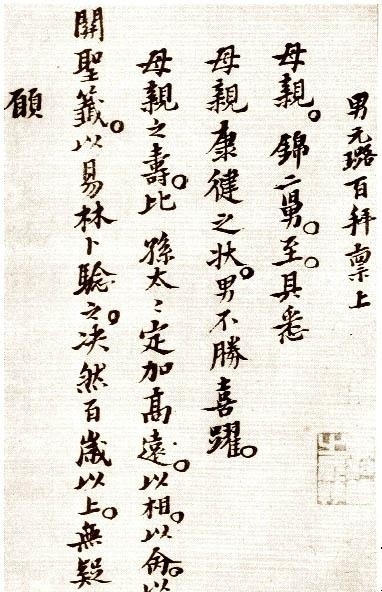 男元璐百拜禀上
母親。錦二舅。至。具悉
母親康健之狀。男不勝喜躍。
母親之壽。比孫太〻定加高遠。以相。以命。以
關聖籤。以易林卜驗之。决然百歲以上。無疑
願